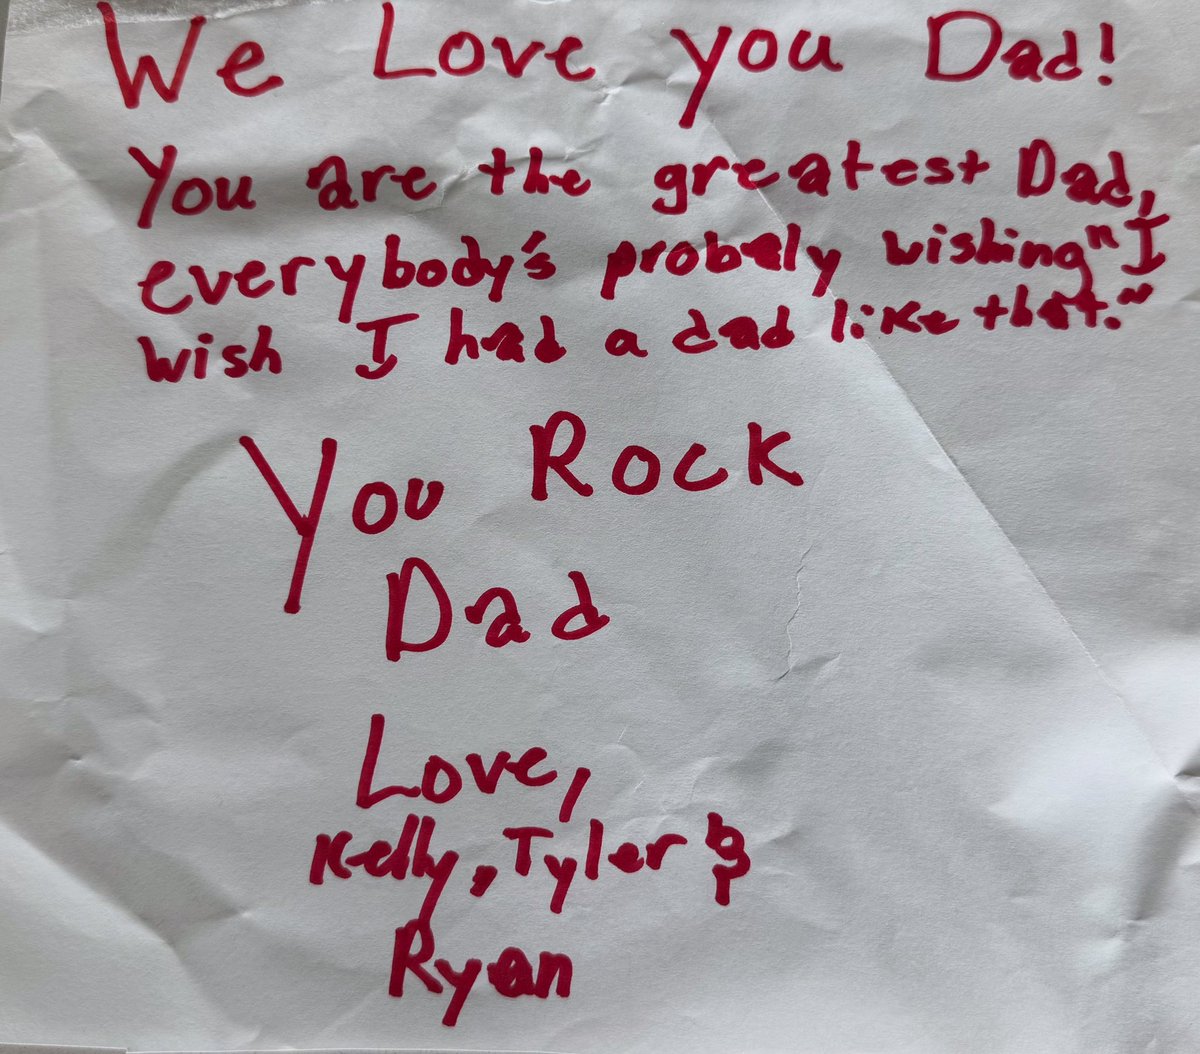 We Love you Dad!
You are the greatest Dad,
everybody's probaly wishing "I
wish I had a dad like that."
You Rock
Dad
Love,
Kelly, Tyler &
Ryan